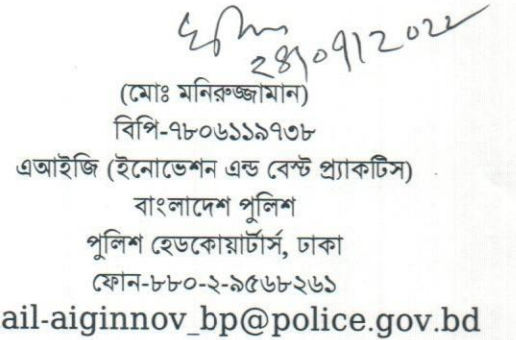 28/09/2022
(মোঃ মনিরুজ্জামান)
বিপি-৭৮০৬১১৯৭৩৮
এআইজি (ইনোভেশন এন্ড বেস্ট প্র্যাকটিস)
বাংলাদেশ পুলিশ
পুলিশ হেডকোয়ার্টার্স, ঢাকা
ফোন-৮৮০-২-৯৫৬৮২৬১
ail-aiginnov_bp@police.gov.bd